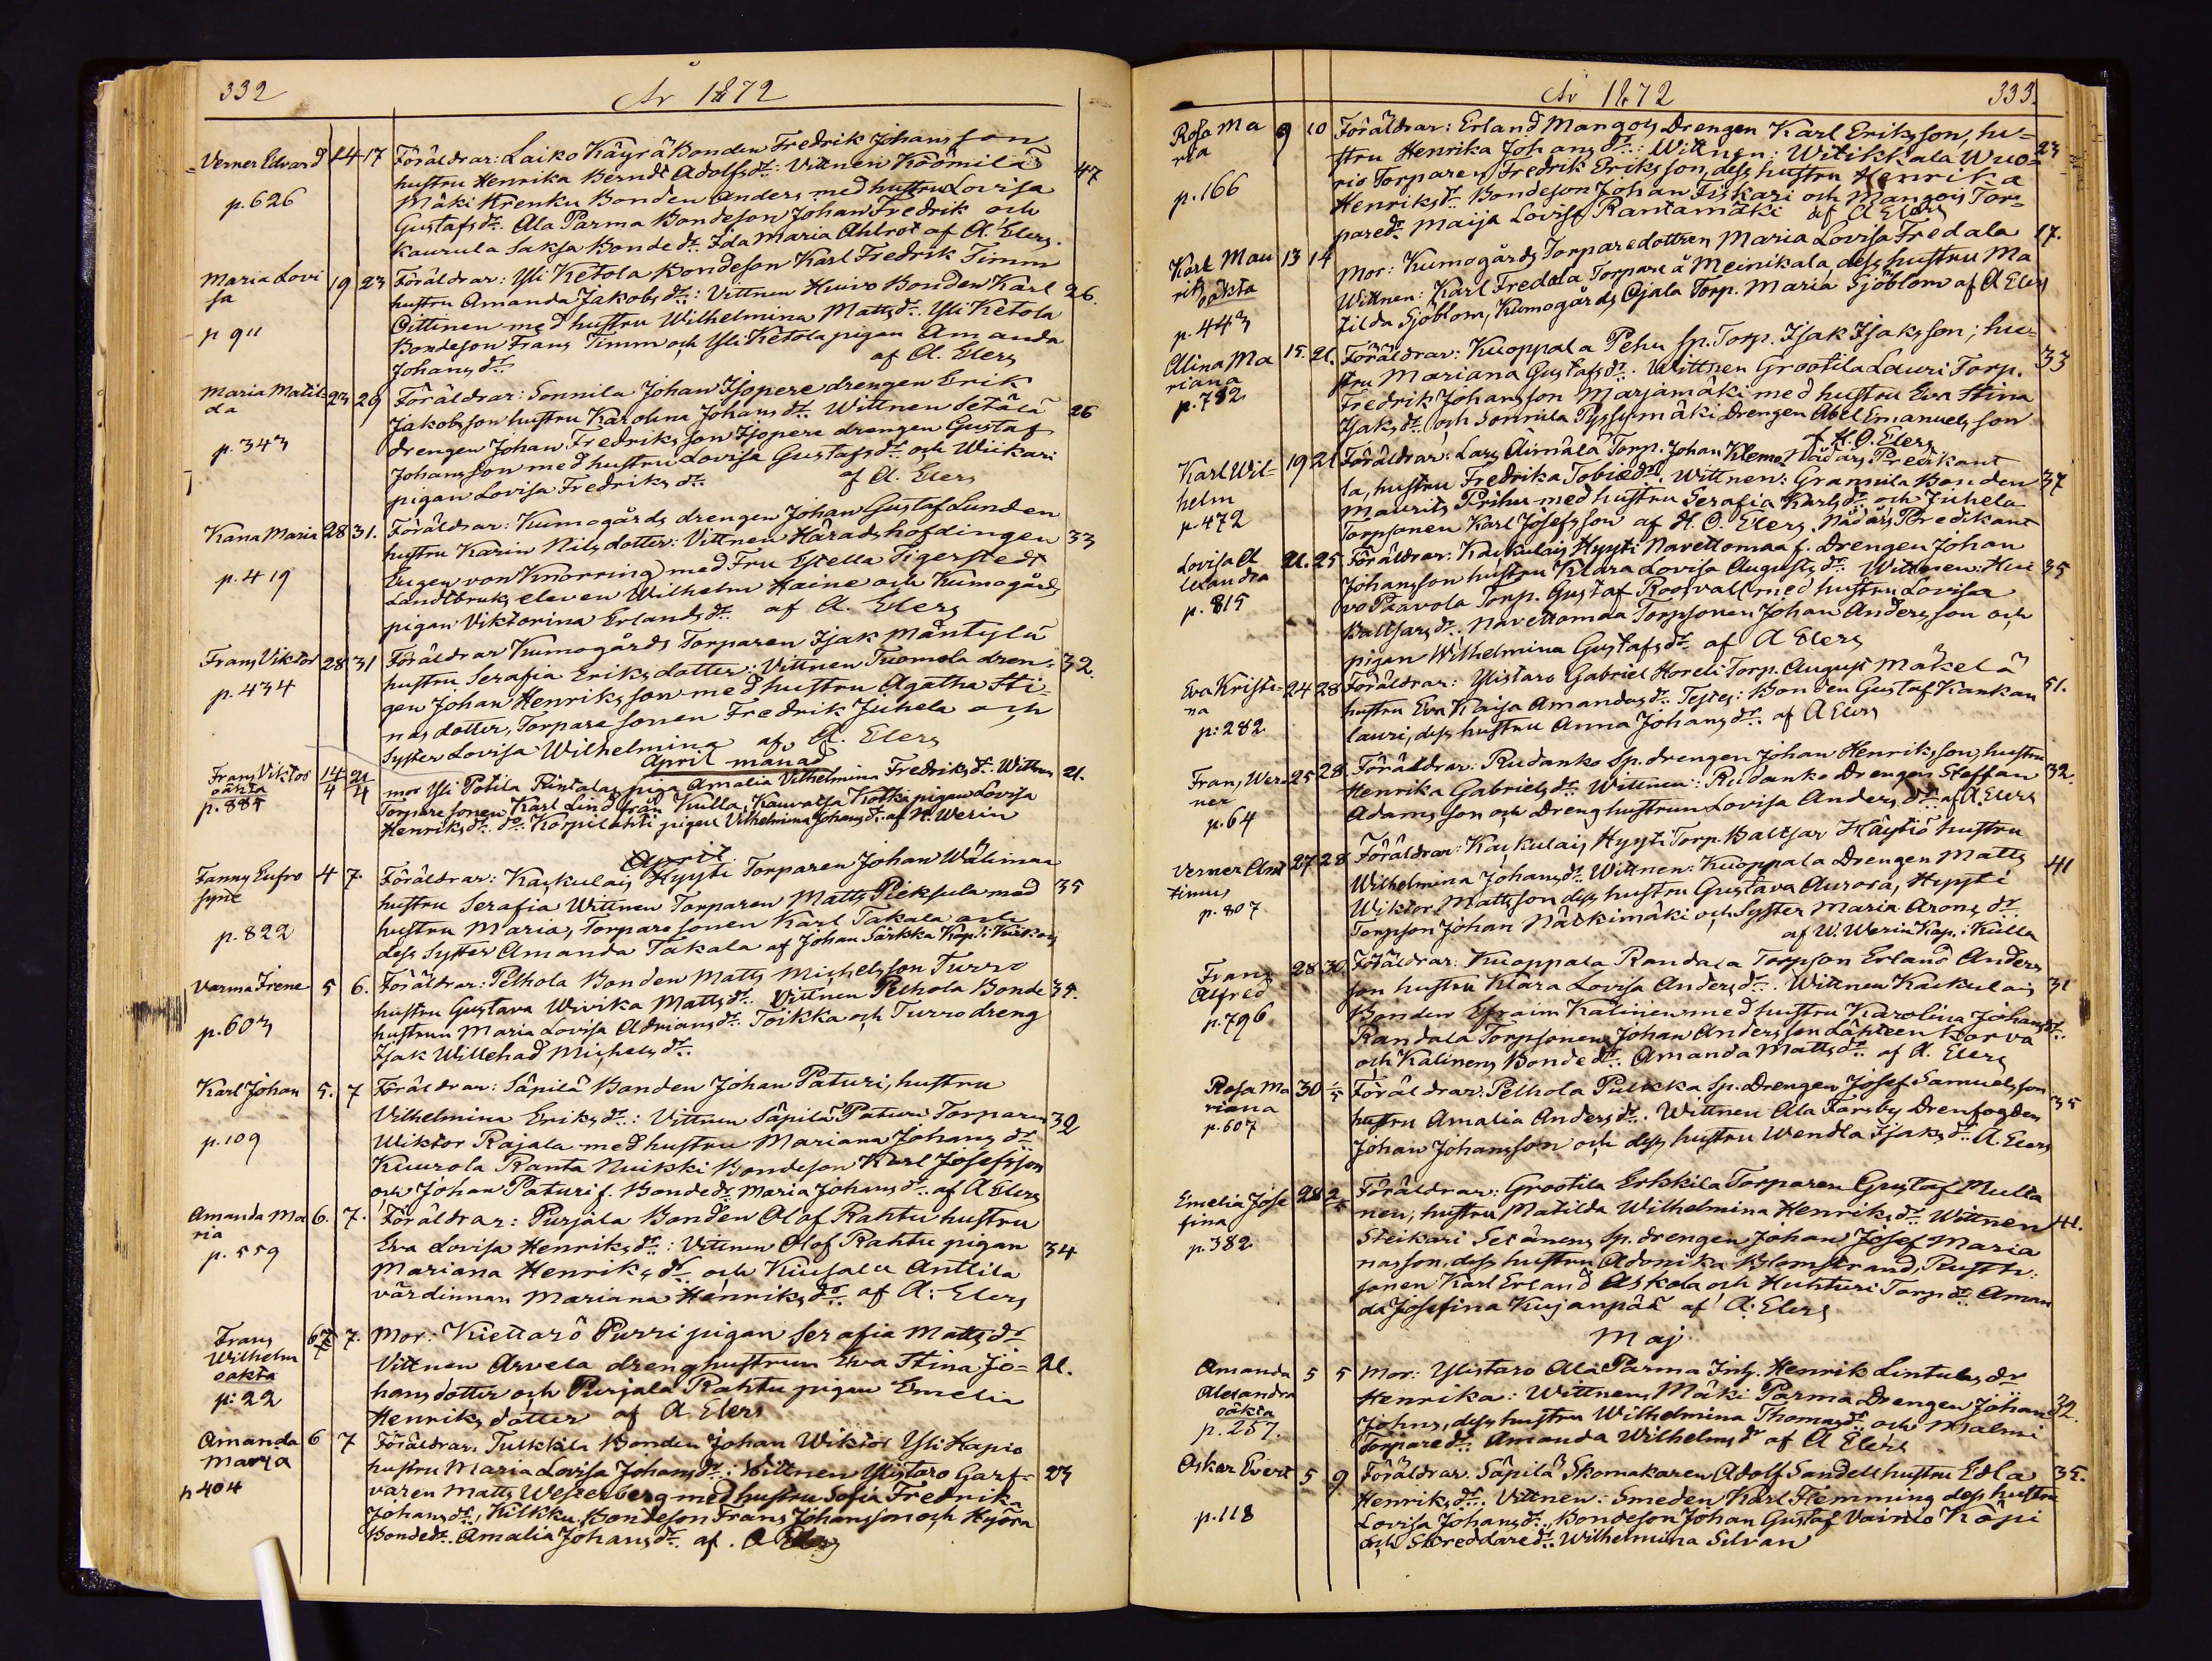 332
År 1872
Verner Edvard 14 17 Föräldrar: Laiko Käyrä Bonden Fredrik Johansson
hustru Henrika Berndt Adolfs dr: Vittnen Köömilä 47
p. 626 Mäki Krenku Bonden Anders med hustru Lovisa
Gustafs dr. Ala Parma Bondeson Johan Fredrik och
Kaurula Saksa Bonde dr. Ida Maria Ahlrot af A. Elers.
Maria Lovi 19 23 Föräldrar: Yli Ketola Bondeson Karl Fredrik Timm
sa hustru Amanda Jakobs dr: Vittnen Huivo Bonden Karl 26.
p 911 Oittinen med hustru Wilhelmina Matts dr. Yli Ketola
Bondeson Frans Timm och Yli Ketola pigan Amanda
Johans dr. af A. Elers
Maria Matil- 23 29 Föräldrar: Sonnila Johan Isopere drengen Erik
da Jakobsson hustru Karolina Johans dr. Wittnen Setälä 26
p. 343 drengen Johan Fredriksson Isopere drengen Gustaf
Johansson med hustru Lovisa Gustafs dr. och Wiikari
pigan Lovisa Fredriks dr. af A. Elers
Kana Maria 28 31. Föräldrar: Kumogårds drengen Johan Gustaf Lunden
hustru Karin Nilsdotter: Vittnen Häradshöfdingen 33
p. 419 Eugen von Knorring med Fru Estella Tigerstedt
Landtbruks eleven Wilhelm Haine och Kumogårds
pigan Viktorina Erlands dr. af A. Elers
Frans Viktor 28 31 Föräldrar Kumogårds Torparen Isak Mäntylä
p. 434 hustru Serafia Eriksdotter: Vittnen Tuomola dren- 32.
gen Johan Henriksson med hustru Agatha Sti-
nasdotter, Torparesonen Fredrik Juhela och
Syster Lovisa Wilhelmina af A. Elers
April månad
Frans Viktor 14/4 21/4 mor Yli Potila Rintalas piga Amalia Vilhelmina Fredriks dr. Wittnen 21.
oäkta Torparesonen Karl Lind från Kulla, Kauvatsa Kotka pigan Lovisa
p. 884 Henriks dr. do Korpilahti pigan Vilhelmina Johans dr. af W. Werin
April
Fanny Eufro 4 7. Föräldrar: Kaukulais Hyyti Torparen Johan Wälimaa
syne hustru Serafia Wittnen Torparen Matts Pieksula med 35
p. 822 hustru Maria, Torparesonen Karl Takala och
dess Syster Amanda Takala af Johan Särkka Kap. i Kiukais
Varma Irene 5 6. Föräldrar: Pelhola Bonden Matts Michelsson Turro
hustru Gustava Wivika Matts dr. Vittnen Pelhola Bonde 34.
p. 603 hustrun Maria Lovisa Admans dr. Toikka och Turro dreng
Isak Willehad Michels dr.
Karl Johan 5. 7 Föräldrar: Säpilä Bonden Johan Paturi, hustru
Vilhelmina Eriks dr: Vittnen Säpilä Paturi Torparen 32
p. 109 Wiktor Rajala med hustru Mariana Johans dr
Kuurola Ranta Nuikki Bondeson Karl Josefsson
och Johan Paturi f. Bonde dr. Maria Johans dr. af A Elers
Amanda Ma 6. 7. Föräldrar: Purjala Bonden Olof Rahtu hustru
ria Eva Lovisa Henriks dr: Vittnen Olof Rahtu pigan 34
p. 559 Mariana Henriks dr och Kiusala Anttila
värdinnan Mariana Henriks dr. af A: Elers
Frans 6 7. Mor: Kiettarö Purri pigan Serafia Matts dr
Wilhelm Vittnen Arvela drenghustrun Eva Stina Jo- 21.
oäkta hansdotter och Purjala Rahtu pigan Emelia
p: 22 Henriksdotter af A. Elers
Amanda 6 7 Föräldrar. Tulkkila Bonden Johan Wiktor Yli Hapio
Maria hustru Maria Lovisa Johans dr: Vittnen Ylistaro Garf- 23
p 404 varen Matts Westerberg med hustru Sofia Fredrika
Johans dr., Kilkku Bondeson Frans Johansson och Hyöra
Bonde dr. Amalia Johans dr. af A Elers
År 1872
333.
Rosa Ma 9 10 Föräldrar: Erland Mangois Drengen Karl Eriksson, hu-
ria stru Henrika Johans dr: Wittnen: Witikkala Wuo- 23
p. 166 rio Torparen Fredrik Eriksson, dess hustru Henrika
Henriks dr. Bondeson Johan Fiskari och Mangois Tor-
pare dr. Maija Lovisa Rantamäki af A Elers
Karl Mau 13 14 Mor: Kumogårds Torparedottren Maria Lovisa Fredala 17.
rits oäkta Wittnen: Karl Fredala Torpare å Meinikala, dess hustru Ma
p. 443 tilda Sjöblom, Kumogårds Ojala Torp. Maria Sjöblom af A Elers
Alina Ma 15. 21. Föräldrar: Kuoppala Pehu Sp. Torp. Isak Isaksson; hu-
riana stru Mariana Gustafs dr. Wittnen Grootila Lauri Torp. 33
p. 782 Fredrik Johansson Marjamäki med hustru Eva Stina
Isaks dr och Sonnila Pyssymäki Drengen Abel Emanuelsson
af H. O. Elers
Karl Wil- 19 21 Föräldrar: Lars Äimälä Torp. Johan Klemet Nådårs Predikant
helm la, hustru Fredrika Tobie dr. Wittnen: Grannila Bonden 37
p. 472 Maurits Prihu med hustru Serafia Karls dr. och Juhela
Torpsonen Karl Josefsson af H. O. Elers Nådårs Predikant
Lovisa A 21. 25 Föräldrar: Kaukulais Hyyti Navettomaa f. Drengen Johan
lexandra Johansson hustru Klara Lovisa Augusts dr. Wittnen: Hui 35
p. 815 vo Paavola Torp. Gustaf Roosvall med hustru Lovisa
Baltsars dr. Navettomaa Torpsonen Johan Andersson och
pigan Wilhelmina Gustafs dr. af A Elers
Eva Kristi- 24 28 Föräldrar: Ylistaro Gabriel Horeli Torp. August Mäkelä 51.
na hustru Eva Kaisa Amandas dr. Testes: Bonden Gustaf Kankan
p: 282 lauri, dess hustru Anna Johans dr. af A Elers
Frans Wer- 25 28 Föräldrar: Rudanko Sp. drengen Johan Henriksson, hustru 32.
ner Henrika Gabriels dr. Wittnen: Rudanko Drengen Steffan
p. 64 Adamsson och drenghustrun Lovisa Anders dr. af A. Elers
Verner Ant 27 28 Föräldrar: Kaukulais Hyyti Torp. Baltsar Häytiö hustru
timus Wilhelmina Johans dr. Wittnen: Kuoppala Drengen Matts 41
p. 807 Wiktor Mattsson dess hustru Gustava Aurora, Hyyti
Torpson Johan Närkimäki och Syster Maria Arons dr.
af W. Werin Kap. i Kulla
Frans 28 30. Föräldrar: Kuoppala Randala Torpson Erland Anders
Alfred son hustru Klara Lovisa Anders dr. Wittnen Kaukulais 31
p. 796 Bonden Efraim Kalinen med hustru Karolina Johans dr.
Randala Torpsonen Johan Andersson Läpteen Korva
och Kalinens Bonde dr. Amanda Matts dr. af A. Elers
Rosa Ma 30 1/5 Föräldrar. Pelhola Pukka Sp. Drengen Josef Samuelsson
riana hustru Amalia Anders dr. Wittnen Ala Forsby Drenfogden 35
p. 607 Johan Johansson och dess hustru Wendla Isaks dr. A. Elers
Emelia Jose 28 2/5 Föräldrar: Grootila Erkkila Torparen Gustaf Mulla
fina nen; hustru Matilda Wilhelmina Henriks dr. Wittnen 41.
p. 382 Steikari Setänens Sp. drengen Johan Josef Maria
nasson, dess hustru Adonika Blomstrand, Rusth:
sonen Karl Erland Askola och Huhturi Torp dr. Aman
da Josefina Kujanpää af A: Elers
Maj
Amanda 5 5 Mor: Ylistaro Ala Parma Inh. Henrik Lintulas dr
Alexandra Henrika: Wittnen, Mäki Parma Drengen Johan 32.
oäkta Johns, dess hustru Wilhelmina Thomas dr. och Malmi
p. 257. Torpare dr. Amanda Wilhelms dr af A Elers
Oskar Evert 5 9 Föräldrar. Säpilä Skomakaren Adolf Sandell hustru Edla 35.
Henriks dr. Vittnen: Smeden Karl Flemming dess hustru
p. 118 Lovisa Johans dr., Bondeson Johan Gustaf Vainio Käpi
och Skreddare dr. Wilhelmina Silvan